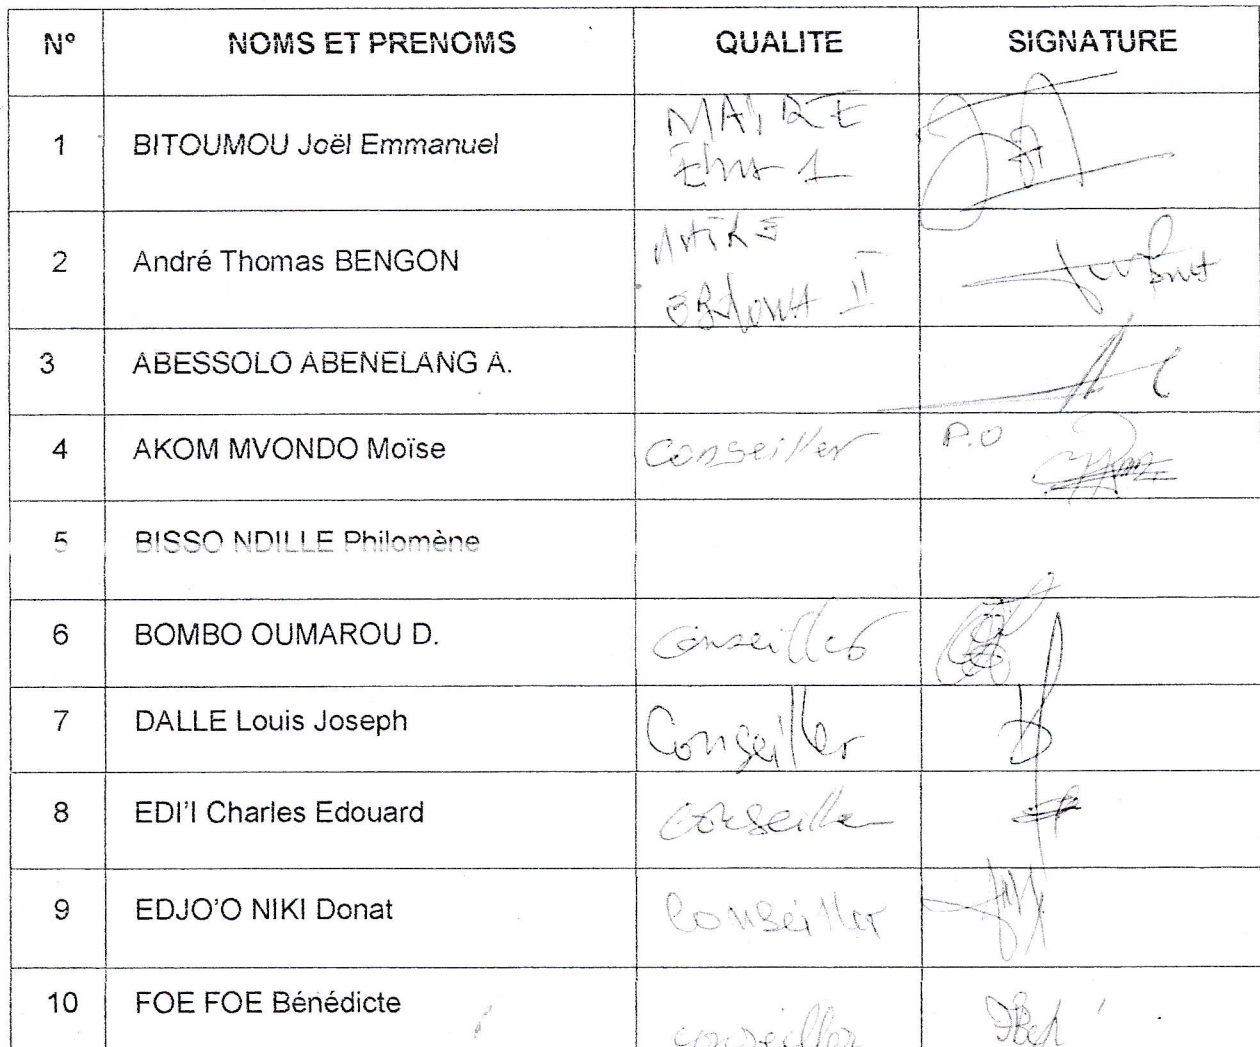 N° NOMS ET PRENOMS QUALITE SIGNATURE
1 BITOUMOU Joël Emmanuel MAIRE
2 André Thomas BENGON MAIRE
II
3 ABESSOLO ABENELANG A.
4 AKOM MVONDO Moïse Conseiller P.O
5 BISSO NDILLE Philomène
6 BOMBO OUMAROU D. Conseiller
7 DALLE Louis Joseph Conseiller
8 EDI'I Charles Edouard conseiller
9 EDJO'O NIKI Donat Conseiller
10 FOE FOE Bénédicte conseiller